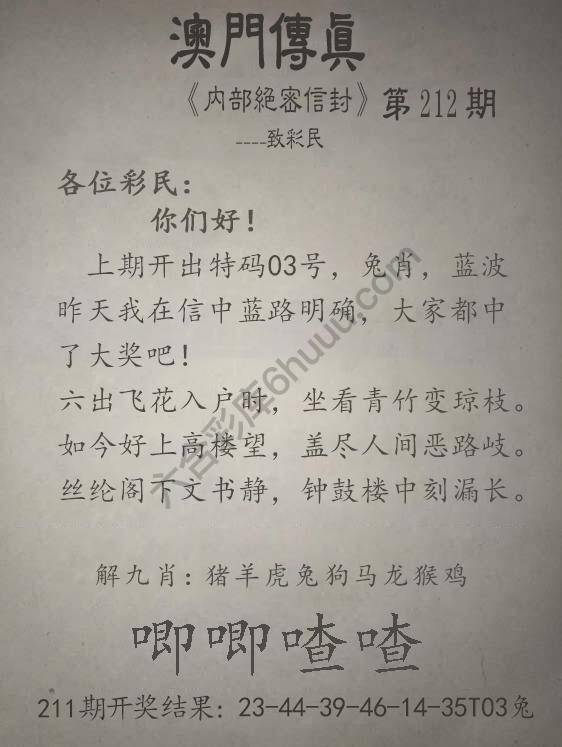 澳門傳眞
《内部絕密信封》第212期
----致彩民
各位彩民：
你们好！
上期开出特码03号，兔肖，蓝波
昨天我在信中蓝路明确，大家都中
了大奖吧！
六出飞花入户时，坐看青竹变琼枝。
如今好上高楼望，盖尽人间恶路歧。
丝纶阁下文书静，钟鼓楼中刻漏长。
解九肖：猪羊虎兔狗马龙猴鸡
唧唧喳喳
211期开奖结果：23-44-39-46-14-35T03兔
六合彩库6huuu.com